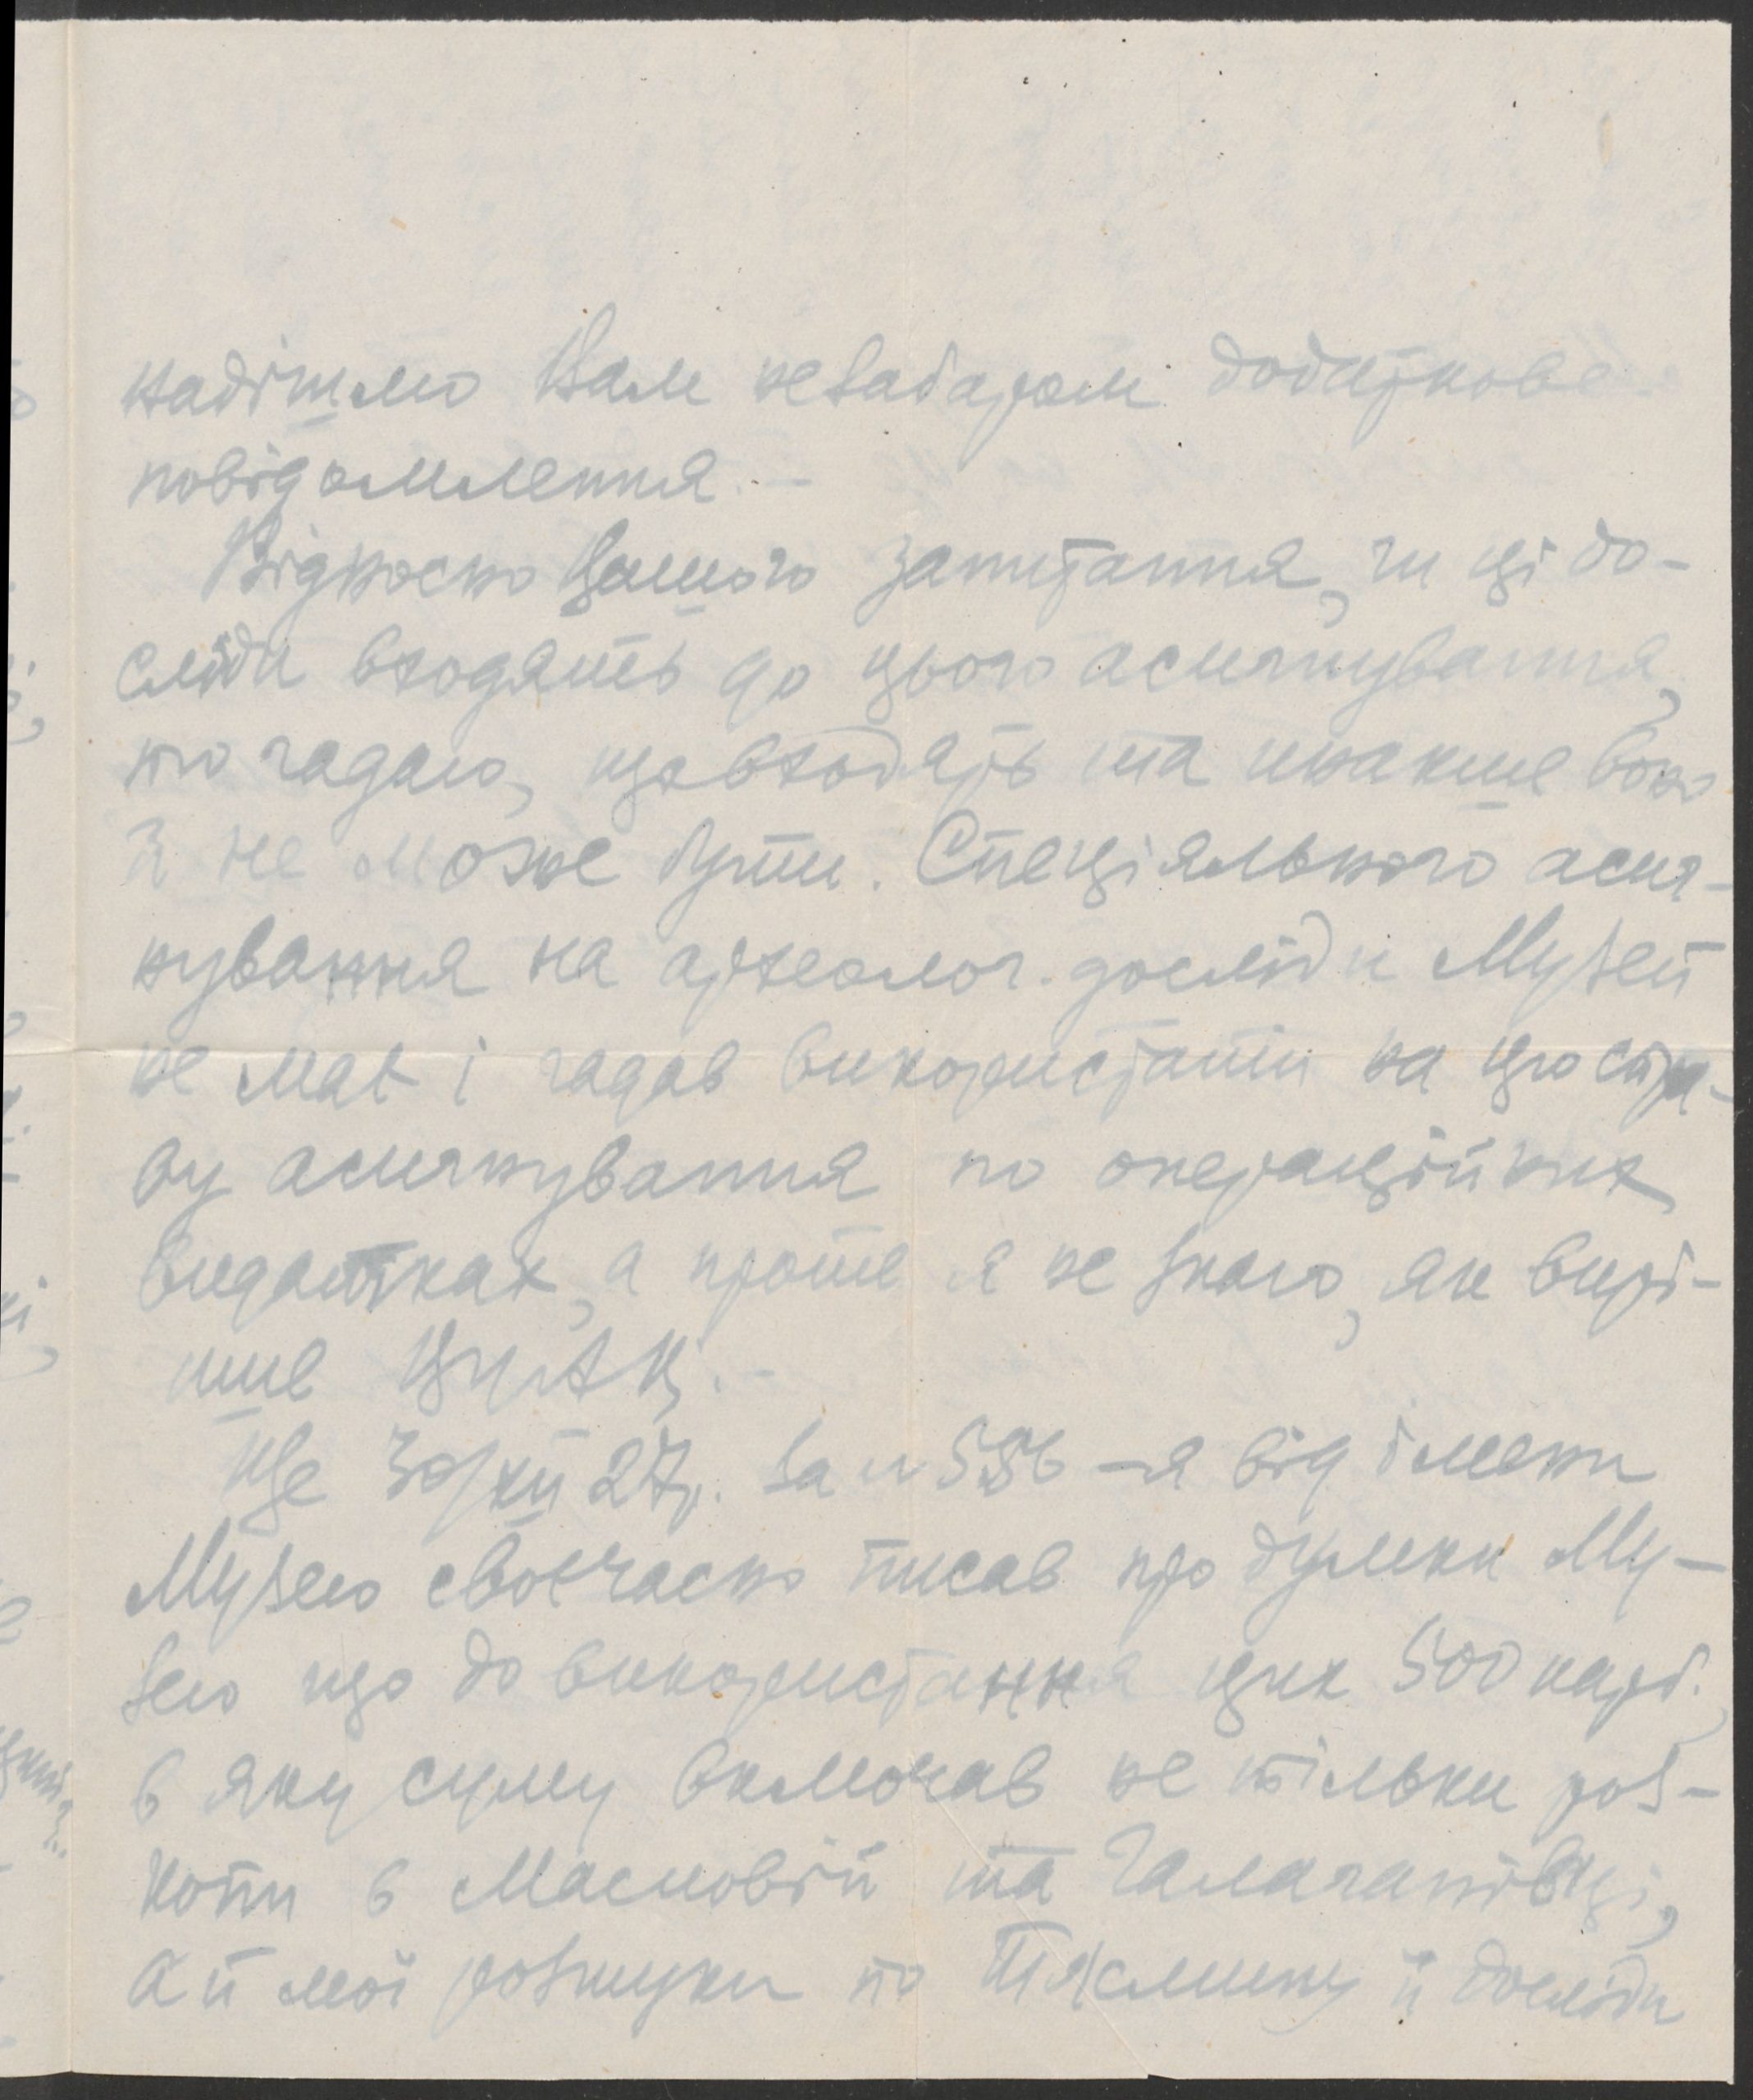 надішлю Вам незабаром додаткове
повідомлення. –
Відносно Вашого запитання, чи ці до-
сліди входять до цього асигнування,
то гадаю, що входять та инакше воно
й не може бути. Спеціяльного асиг-
нування на археолог. досліди Музей
не мав і гадав використати на цю спра-
ву асигнування по операційних
видатках, а проте я не знаю, як вирі-
шить
Ще 30/XII 27р. за № 556 – я від імени
Музею своєчасно писав про думки Му-
зею що до використання цих 500 карб.,
в яку суму включав не тільки роз-
копи в Масловій та Галаганівці,
а й мої розшуки по Тясмину й досліди